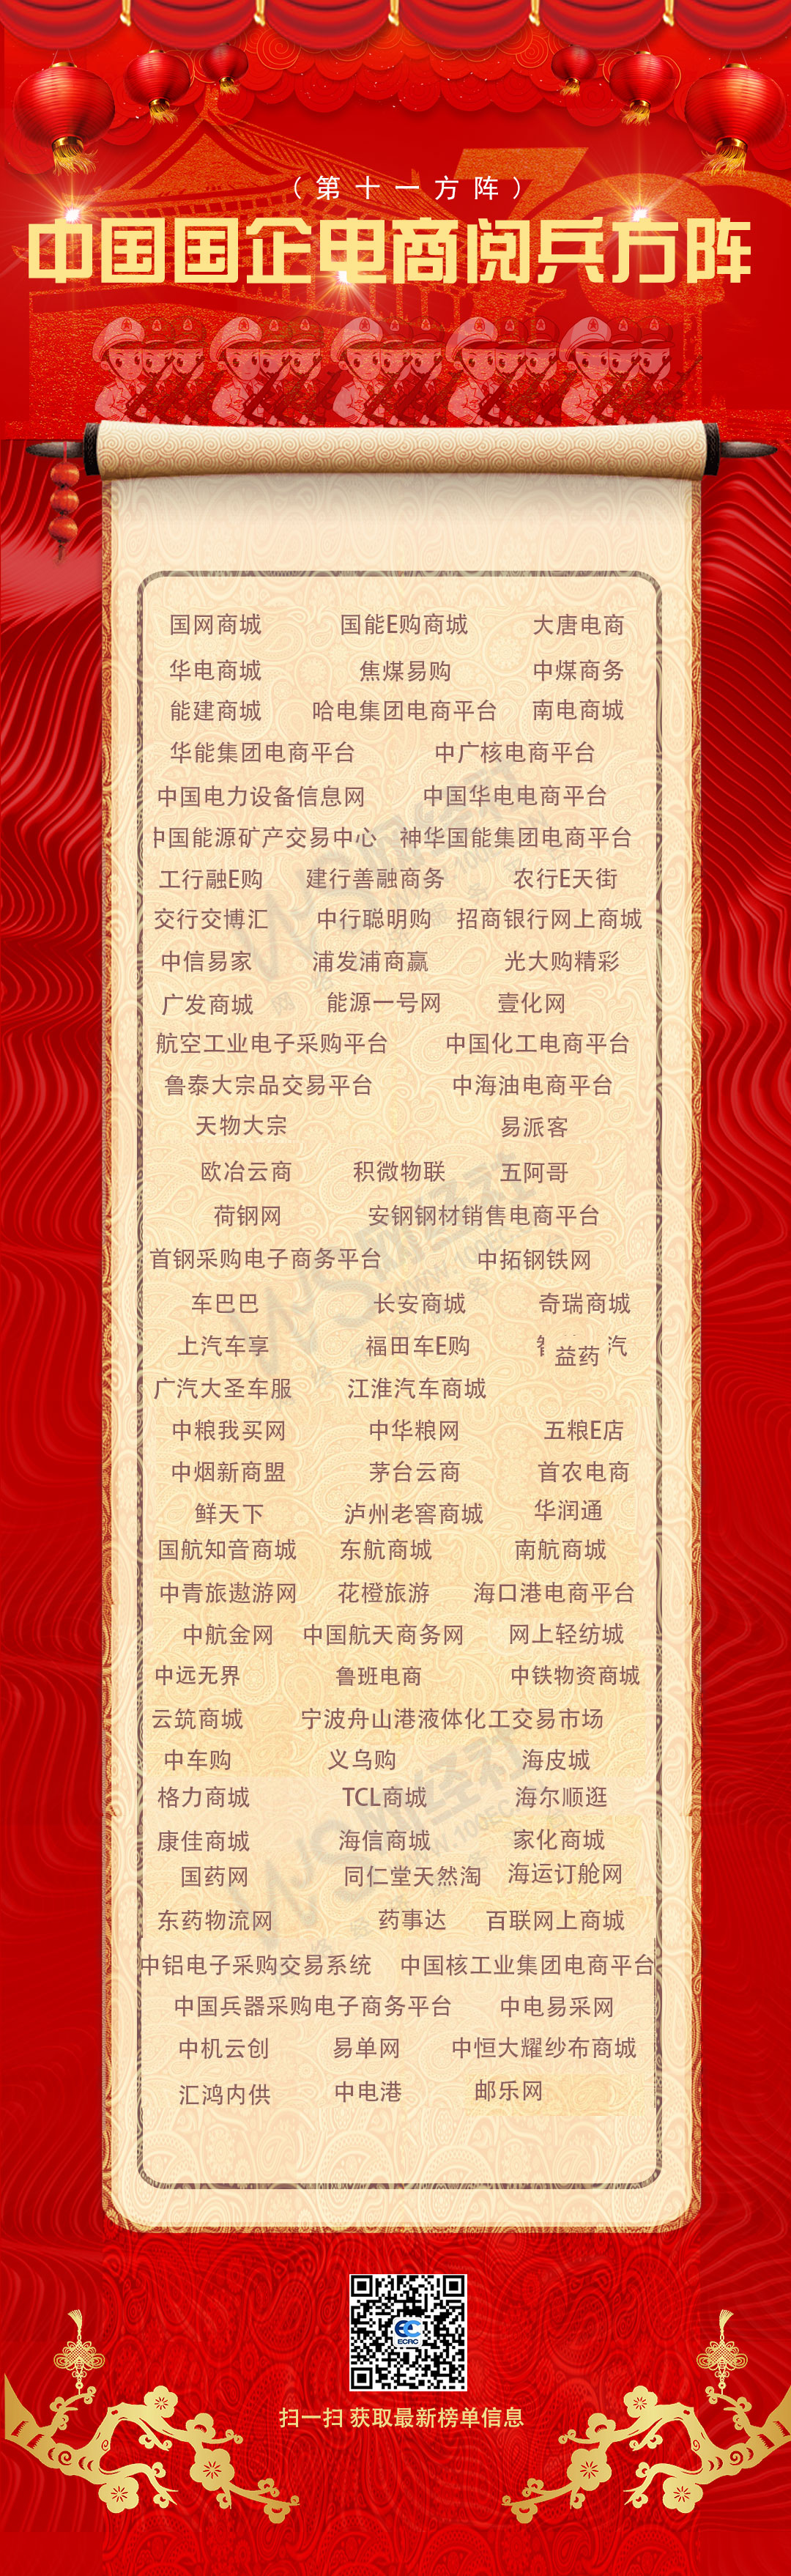 （第十一方阵）
中国国企电商阅兵方阵
国网商城 国能E购商城 大唐电商
华电商城 焦煤易购 中煤商务
能建商城 哈电集团电商平台 南电商城
华能集团电商平台 中广核电商平台
中国电力设备信息网 中国华电电商平台
中国能源矿产交易中心 神华国能集团电商平台
工行融E购 建行善融商务 农行E天街
交行交博汇 中行聪明购 招商银行网上商城
中信易家 浦发浦商赢 光大购精彩
广发商城 能源一号网 壹化网
航空工业电子采购平台 中国化工电商平台
鲁泰大宗品交易平台 中海油电商平台
天物大宗 易派客
欧冶云商 积微物联 五阿哥
荷钢网 安钢钢材销售电商平台
首钢采购电子商务平台 中拓钢铁网
车巴巴 长安商城 奇瑞商城
上汽车享 福田车E购 益药 汽
广汽大圣车服 江淮汽车商城
中粮我买网 中华粮网 五粮E店
中烟新商盟 茅台云商 首农电商
鲜天下 泸州老窖商城 华润通
国航知音商城 东航商城 南航商城
中青旅遨游网 花橙旅游 海口港电商平台
中航金网 中国航天商务网 网上轻纺城
中远无界 鲁班电商 中铁物资商城
云筑商城 宁波舟山港液体化工交易市场
中车购 义乌购 海皮城
格力商城 TCL商城 海尔顺逛
康佳商城 海信商城 家化商城
国药网 同仁堂天然淘 海运订舱网
东药物流网 药事达 百联网上商城
中铝电子采购交易系统 中国核工业集团电商平台
中国兵器采购电子商务平台 中电易采网
中机云创 易单网 中恒大耀纱布商城
汇鸿内供 中电港 邮乐网
ECRC
扫一扫 获取最新榜单信息